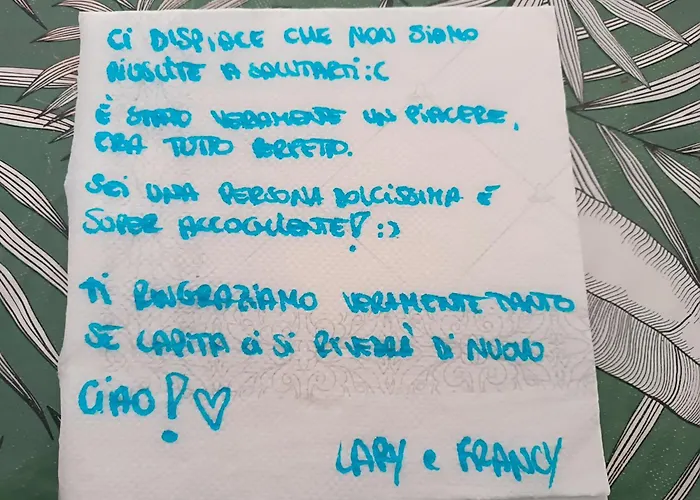 CI DISPIACE CHE NON SIAMO
RIUSCITE A SALUTARTI :C
È STATO VERAMENTE UN PIACERE,
ERA TUTTO PERFETTO.
SEI UNA PERSONA DOLCISSIMA E
SUPER ACCOGLIENTE! :)
TI RINGRAZIAMO VERAMENTE TANTO
SE CAPITA CI SI RIVEDRÀ DI NUOVO
CIAO! ♡
LARY e FRANCY